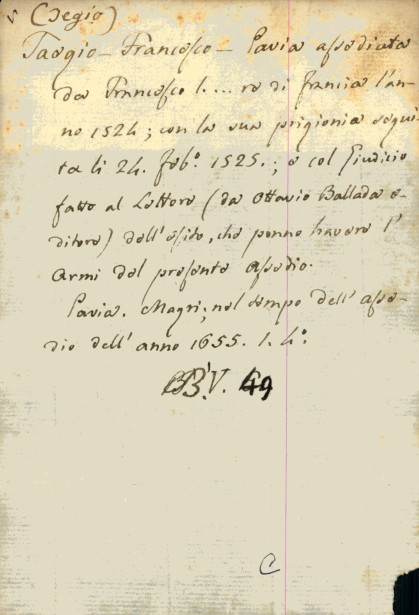 (Tegio)
Taegio - Francesco - Pavia assediata
da Francesco I.... re di francia l'an-
no 1524; con la sua prigionia segui-
ta li 24. feb.º 1525.; e col Giudicio
fatto al Lettore (da Ottavio Ballada e-
ditore) dell'esito, che ponno havere l'
Armi del presente Assedio.
Pavia. Magri; nel tempo dell'asse-
dio dell'anno 1655. 1. 4.º
BB.V. 49
C